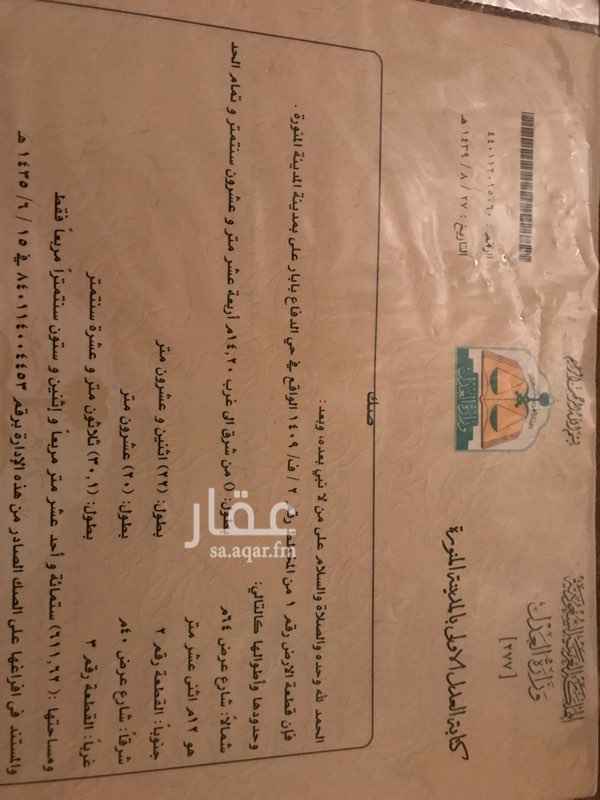 بسم الله الرحمن الرحيم
المملكة العربية السعودية
وزارة العدل
[٢٧٧]
كتابة العدل الأولى بالمدينة المنورة
وزارة العدل
الرقم:
التاريخ: ٢٧ / ٨ / ١٤٣٩ هـ
صك
الحمد لله وحده والصلاة والسلام على من لا نبي بعده، وبعد:
فإن قطعة الارض رقم ١ من المخطط رقم ٢ / ف / ١٤٠٩ الواقع في حي الدفاع بابار على بمدينة المدينة المنورة .
وحدودها وأطوالها كالتالي:
شمالاً: شارع عرض ٦٤م بطول: () من شرق الى غرب ١٤,٢٠م أربعة عشر متر و عشرون سنتمتر و تمام الحد
هو ١٢م اثنى عشر متر
جنوباً: القطعة رقم ٢ بطول: (٢٢) اثنين و عشرون متر
شرقاً: شارع عرض ٤٠م بطول: (٢٠) عشرون متر
غرباً: القطعة رقم ٣ بطول: (٣٠,١) ثلاثون متر و عشرة سنتمتر
ومساحتها :( ٦١١,٦٢) ستمائة و أحد عشر متر مربعاً و إثنين و ستون سنتمتراً مربعاً فقط
والمستند في افراغها على الصك الصادر من هذه الإدارة برقم ٨٤٠١١٤٠٠٤٤٥٣ في ١٥ / ٦ / ١٤٣٥ هـ
عقار
sa.aqar.fm